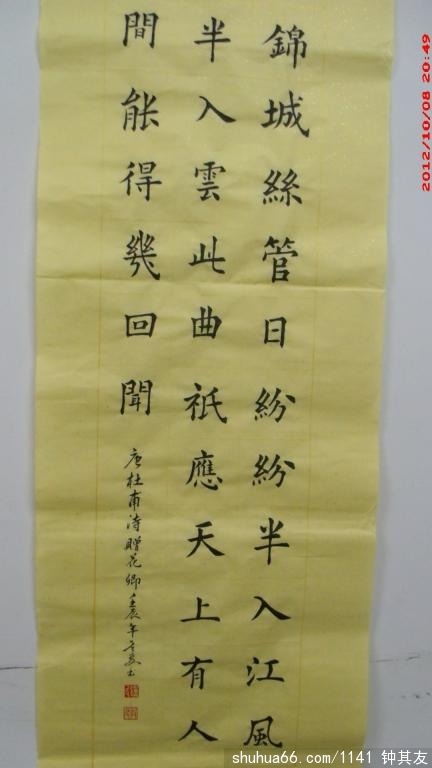 錦城絲管日紛紛半入江風
半入雲此曲祇應天上有人
間能得幾回聞
唐杜甫詩贈花卿壬辰年書
2012/10/08 20:49
shuhua66.com/1141 钟其友